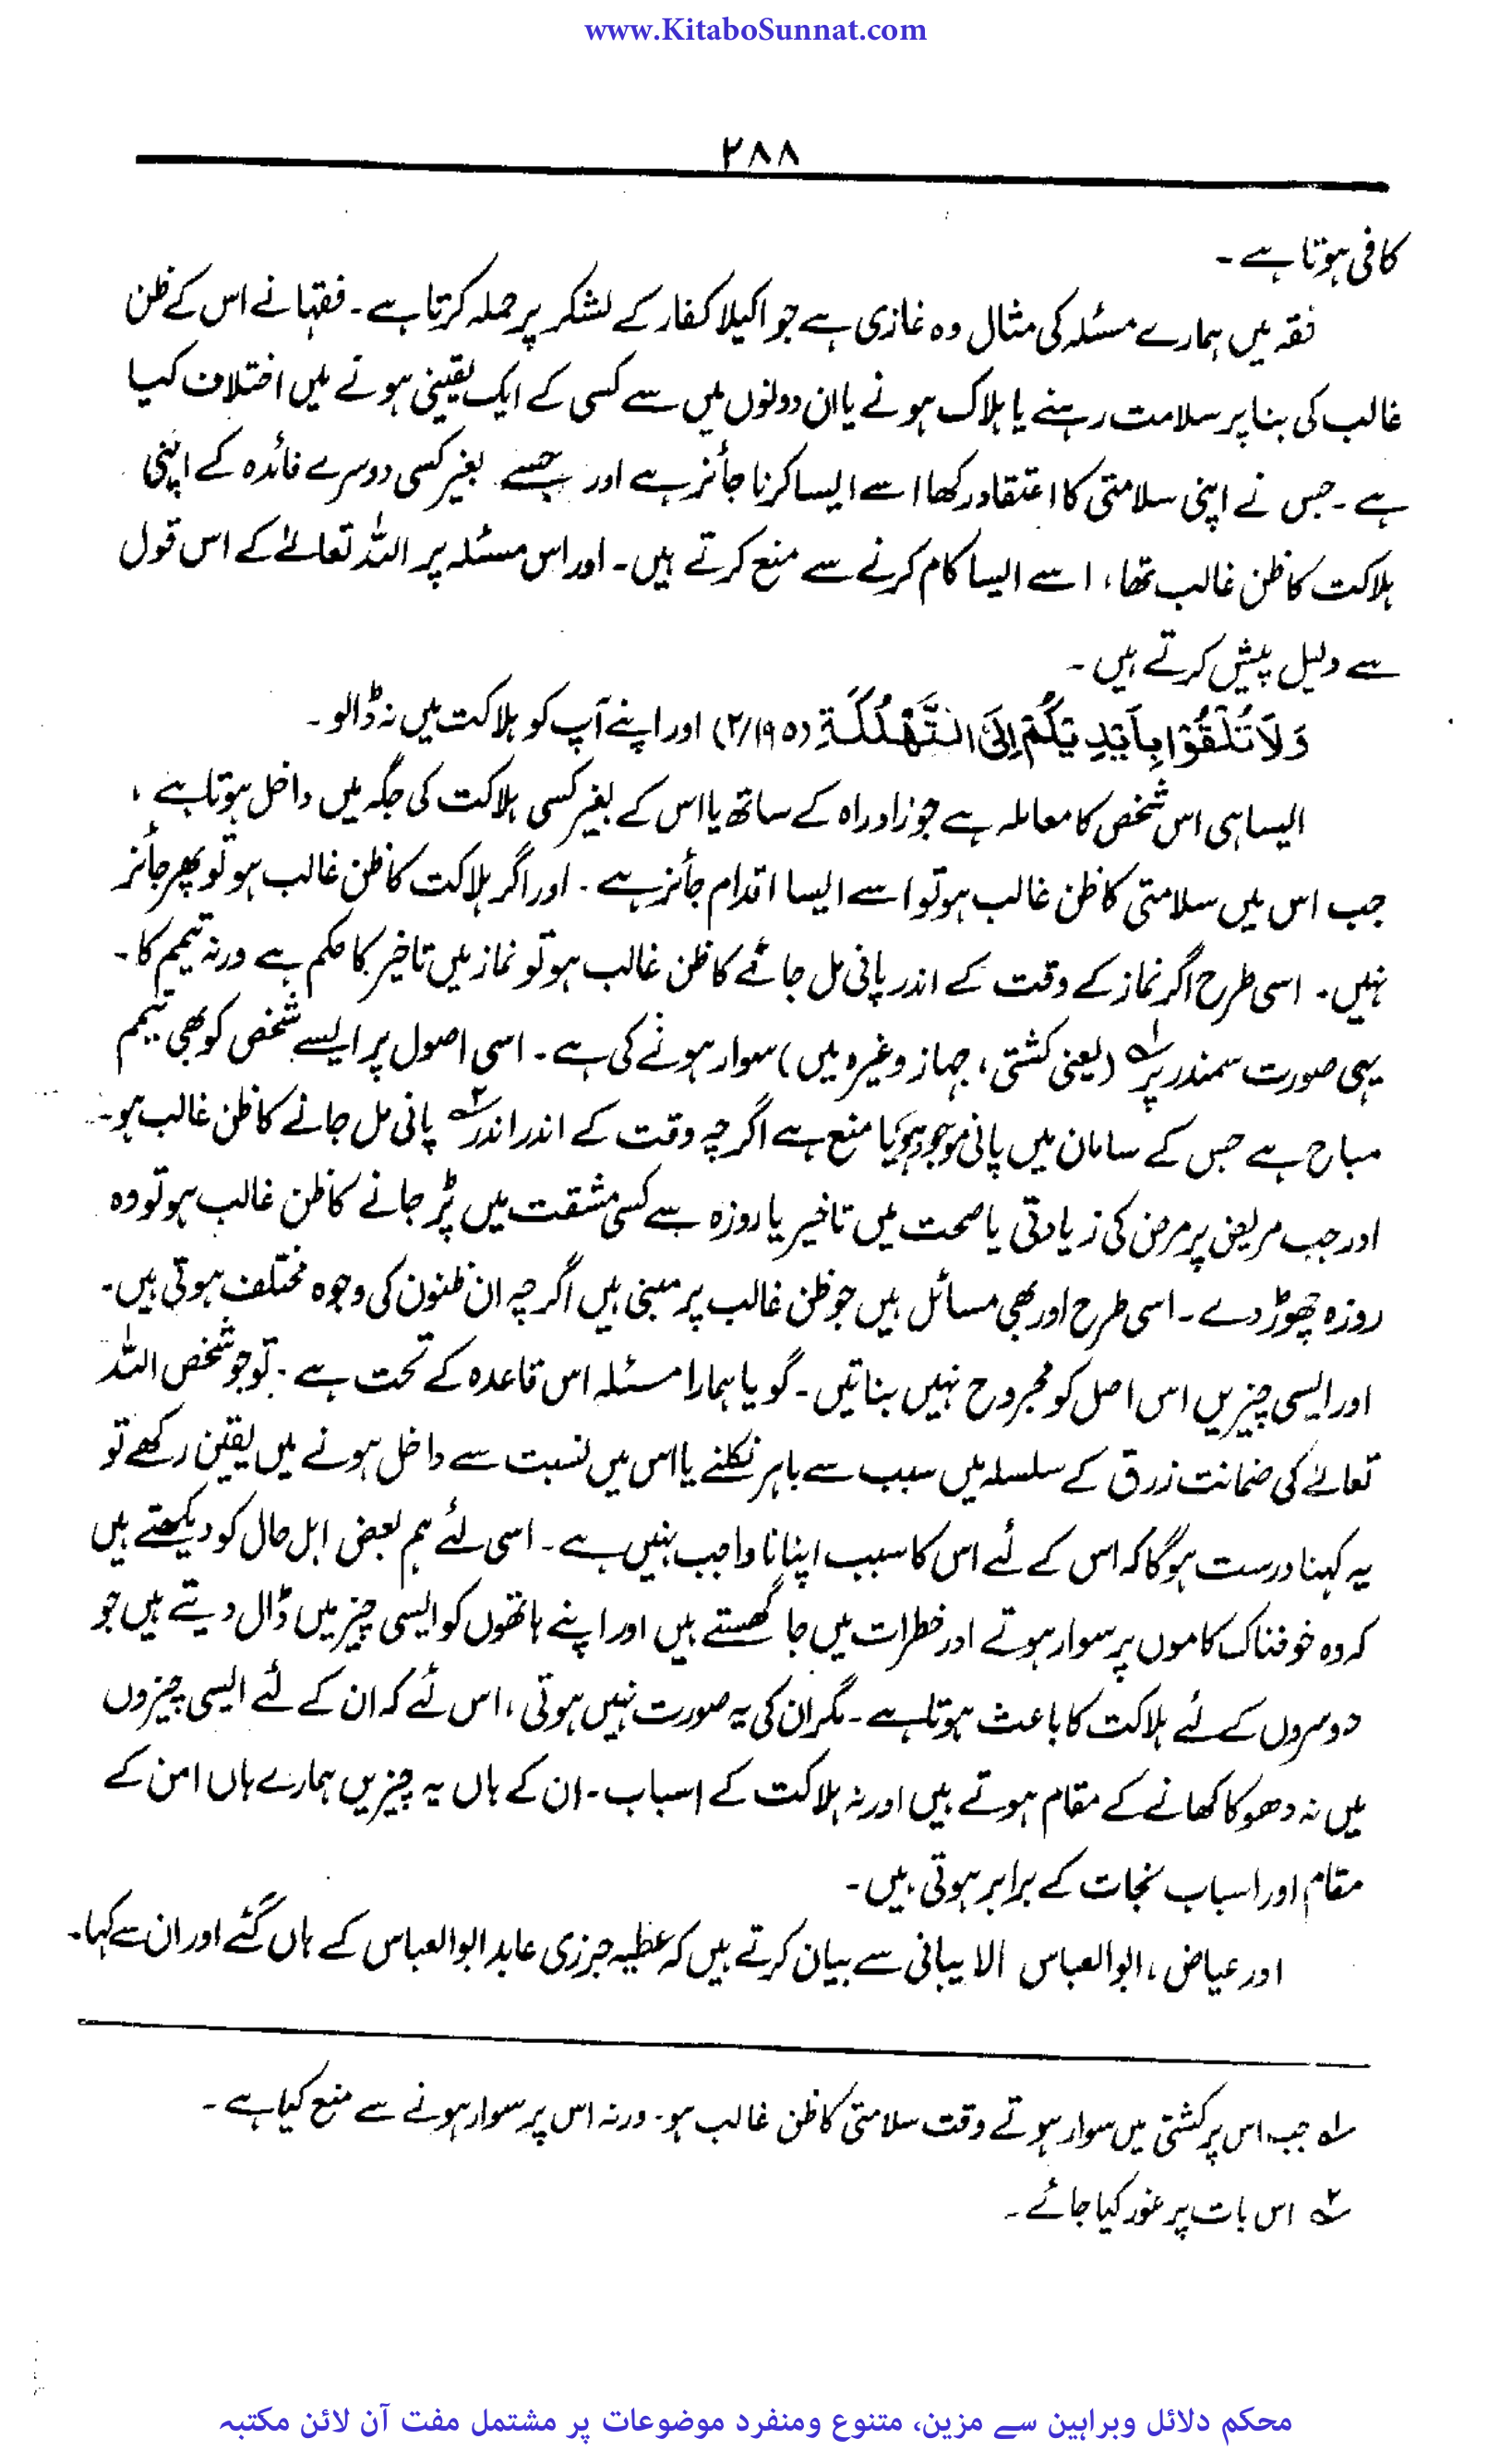 www.KitaboSunnat.com
۲۸۸
کافی ہوتا ہے ۔
فقہ میں ہمارے مسئلہ کی مثال وہ غازی ہے جو اکیلا کفار کے لشکر پر حملہ کرتا ہے ۔ فقہا نے اس کے ظن
غالب کی بنا پر سلامت رہنے یا ہلاک ہونے یا ان دونوں میں سے کسی کے ایک یقینی ہونے میں اختلاف کیا
ہے ۔ جس نے اپنی سلامتی کا اعتقاد رکھا اسے ایسا کرنا جائز ہے اور جسے بغیر کسی دوسرے فائدہ کے اپنی
ہلاکت کا ظن غالب تھا، اسے ایسا کام کرنے سے منع کرتے ہیں ۔ اور اس مسئلہ پر اللہ تعالےٰ کے اس قول
سے دلیل پیش کرتے ہیں ۔
وَلَا تُلْقُوْا بِاَيْدِيْكُمْ اِلَى التَّهْلُكَةِ (۲/۱۹۵) اور اپنے آپ کو ہلاکت میں نہ ڈالو ۔
ایسا ہی اس شخص کا معاملہ ہے جو زاد راہ کے ساتھ یا اس کے بغیر کسی ہلاکت کی جگہ میں داخل ہوتا ہے ،
جب اس میں سلامتی کا ظن غالب ہو تو اسے ایسا اقدام جائز ہے ۔ اور اگر ہلاکت کا ظن غالب ہو تو پھر جائز
نہیں ۔ اسی طرح اگر نماز کے وقت کے اندر پانی مل جائے کا ظن غالب ہو تو نماز میں تاخیر کا حکم ہے ورنہ تیمم کا ۔
یہی صورت سمندر پر ؂۱ (یعنی کشتی، جہاز وغیرہ میں) سوار ہونے کی ہے ۔ اسی اصول پر ایسے شخص کو بھی تیمم
مباح ہے جس کے سامان میں پانی موجود ہو یا منع ہے اگرچہ وقت کے اندر اندر ؂۲ پانی مل جانے کا ظن غالب ہو ۔
اور جب مریض پر مرض کی زیادتی یا صحت میں تاخیر یا روزہ سے کسی مشقت میں پڑ جانے کا ظن غالب ہو تو وہ
روزہ چھوڑ دے ۔ اسی طرح اور بھی مسائل ہیں جو ظن غالب پر مبنی ہیں اگرچہ ان ظنون کی وجوہ مختلف ہوتی ہیں ۔
اور ایسی چیزیں اس اصل کو مجروح نہیں بناتیں ۔ گویا ہمارا مسئلہ اس قاعدہ کے تحت ہے ۔ تو جو شخص اللہ
تعالےٰ کی ضمانت زرق کے سلسلہ میں سبب سے باہر نکلنے یا اس میں نسبت سے داخل ہونے میں یقین رکھے تو
یہ کہنا درست ہوگا کہ اس کے لئے اس کا سبب اپنانا واجب نہیں ہے ۔ اسی لئے ہم بعض اہل حال کو دیکھتے ہیں
کہ وہ خوفناک کاموں پر سوار ہوتے اور خطرات میں جا گھستے ہیں اور اپنے ہاتھوں کو ایسی چیز میں ڈال دیتے ہیں جو
دوسروں کے لئے ہلاکت کا باعث ہوتا ہے ۔ مگر ان کی یہ صورت نہیں ہوتی ، اس لئے کہ ان کے لئے ایسی چیزوں
میں نہ دھوکا کھانے کے مقام ہوتے ہیں اور نہ ہلاکت کے اسباب ۔ ان کے ہاں یہ چیزیں ہمارے ہاں امن کے
مقام اور اسباب نجات کے برابر ہوتی ہیں ۔
اور عیاض ، ابوالعباس الابیانی سے بیان کرتے ہیں کہ عطیہ جرزی عابد ابوالعباس کے ہاں گئے اور ان سے کہا ۔
؂۱ جب اس پر کشتی میں سوار ہوتے وقت سلامتی کا ظن غالب ہو ۔ ورنہ اس پر سوار ہونے سے منع کیا ہے ۔
؂۲ اس بات پر غور کیا جائے ۔
محکم دلائل وبراہین سے مزین، متنوع ومنفرد موضوعات پر مشتمل مفت آن لائن مکتبہ